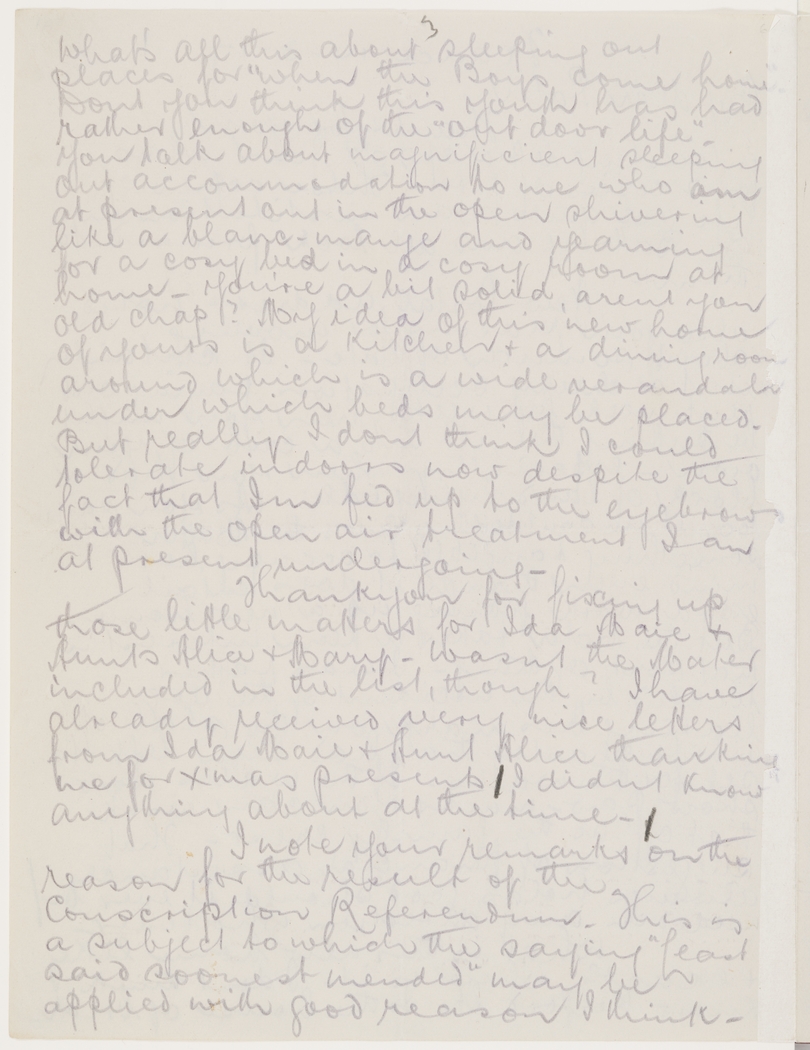 3
What's all this about sleeping out
places for "when the Boys come home"
Don't you think this youth has had
rather enough of the "out door life".
You talk about magnificient sleeping
out accommodation to me who am
at present out in the open shivering
like a blanc-mange and yearning
for a cosy bed in a cosy room at
home - You're a bit solid, arent you
old chap? My idea of this new home
of yours is a kitchen & a dining room
around which is a wide verandah
under which beds may be placed.
But really I dont think I could
tolerate indoors now despite the
fact that I'm fed up to the eyebrows
with the open air treatment I am
at present undergoing -
Thankyou for fixing up
those little matters for Ida Maie &
Aunts Alice & Mary - wasnt the Mater
included in the list, though? I have
already received very nice letters
from Ida Maie & Aunt Alice thanking
me for X'mas presents / I didnt know
anything about at the time - /
I note your remarks on the
reason for the result of the
Conscription Referendum. This is
a subject to which the saying "least
said soonest mended" may be
applied with good reason I think -